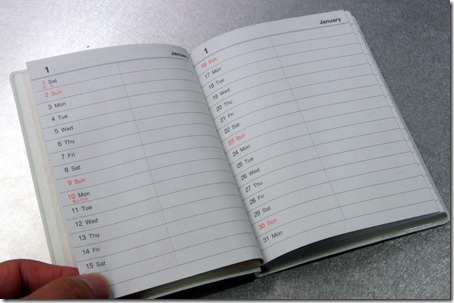 1 January
1 Sat
2 Sun
3 Mon
4 Tue
5 Wed
6 Thu
7 Fri
8 Sat
9 Sun
10 Mon
11 Tue
12 Wed
13 Thu
14 Fri
15 Sat
1 January
16 Sun
17 Mon
18 Tue
19 Wed
20 Thu
21 Fri
22 Sat
23 Sun
24 Mon
25 Tue
26 Wed
27 Thu
28 Fri
29 Sat
30 Sun
31 Mon